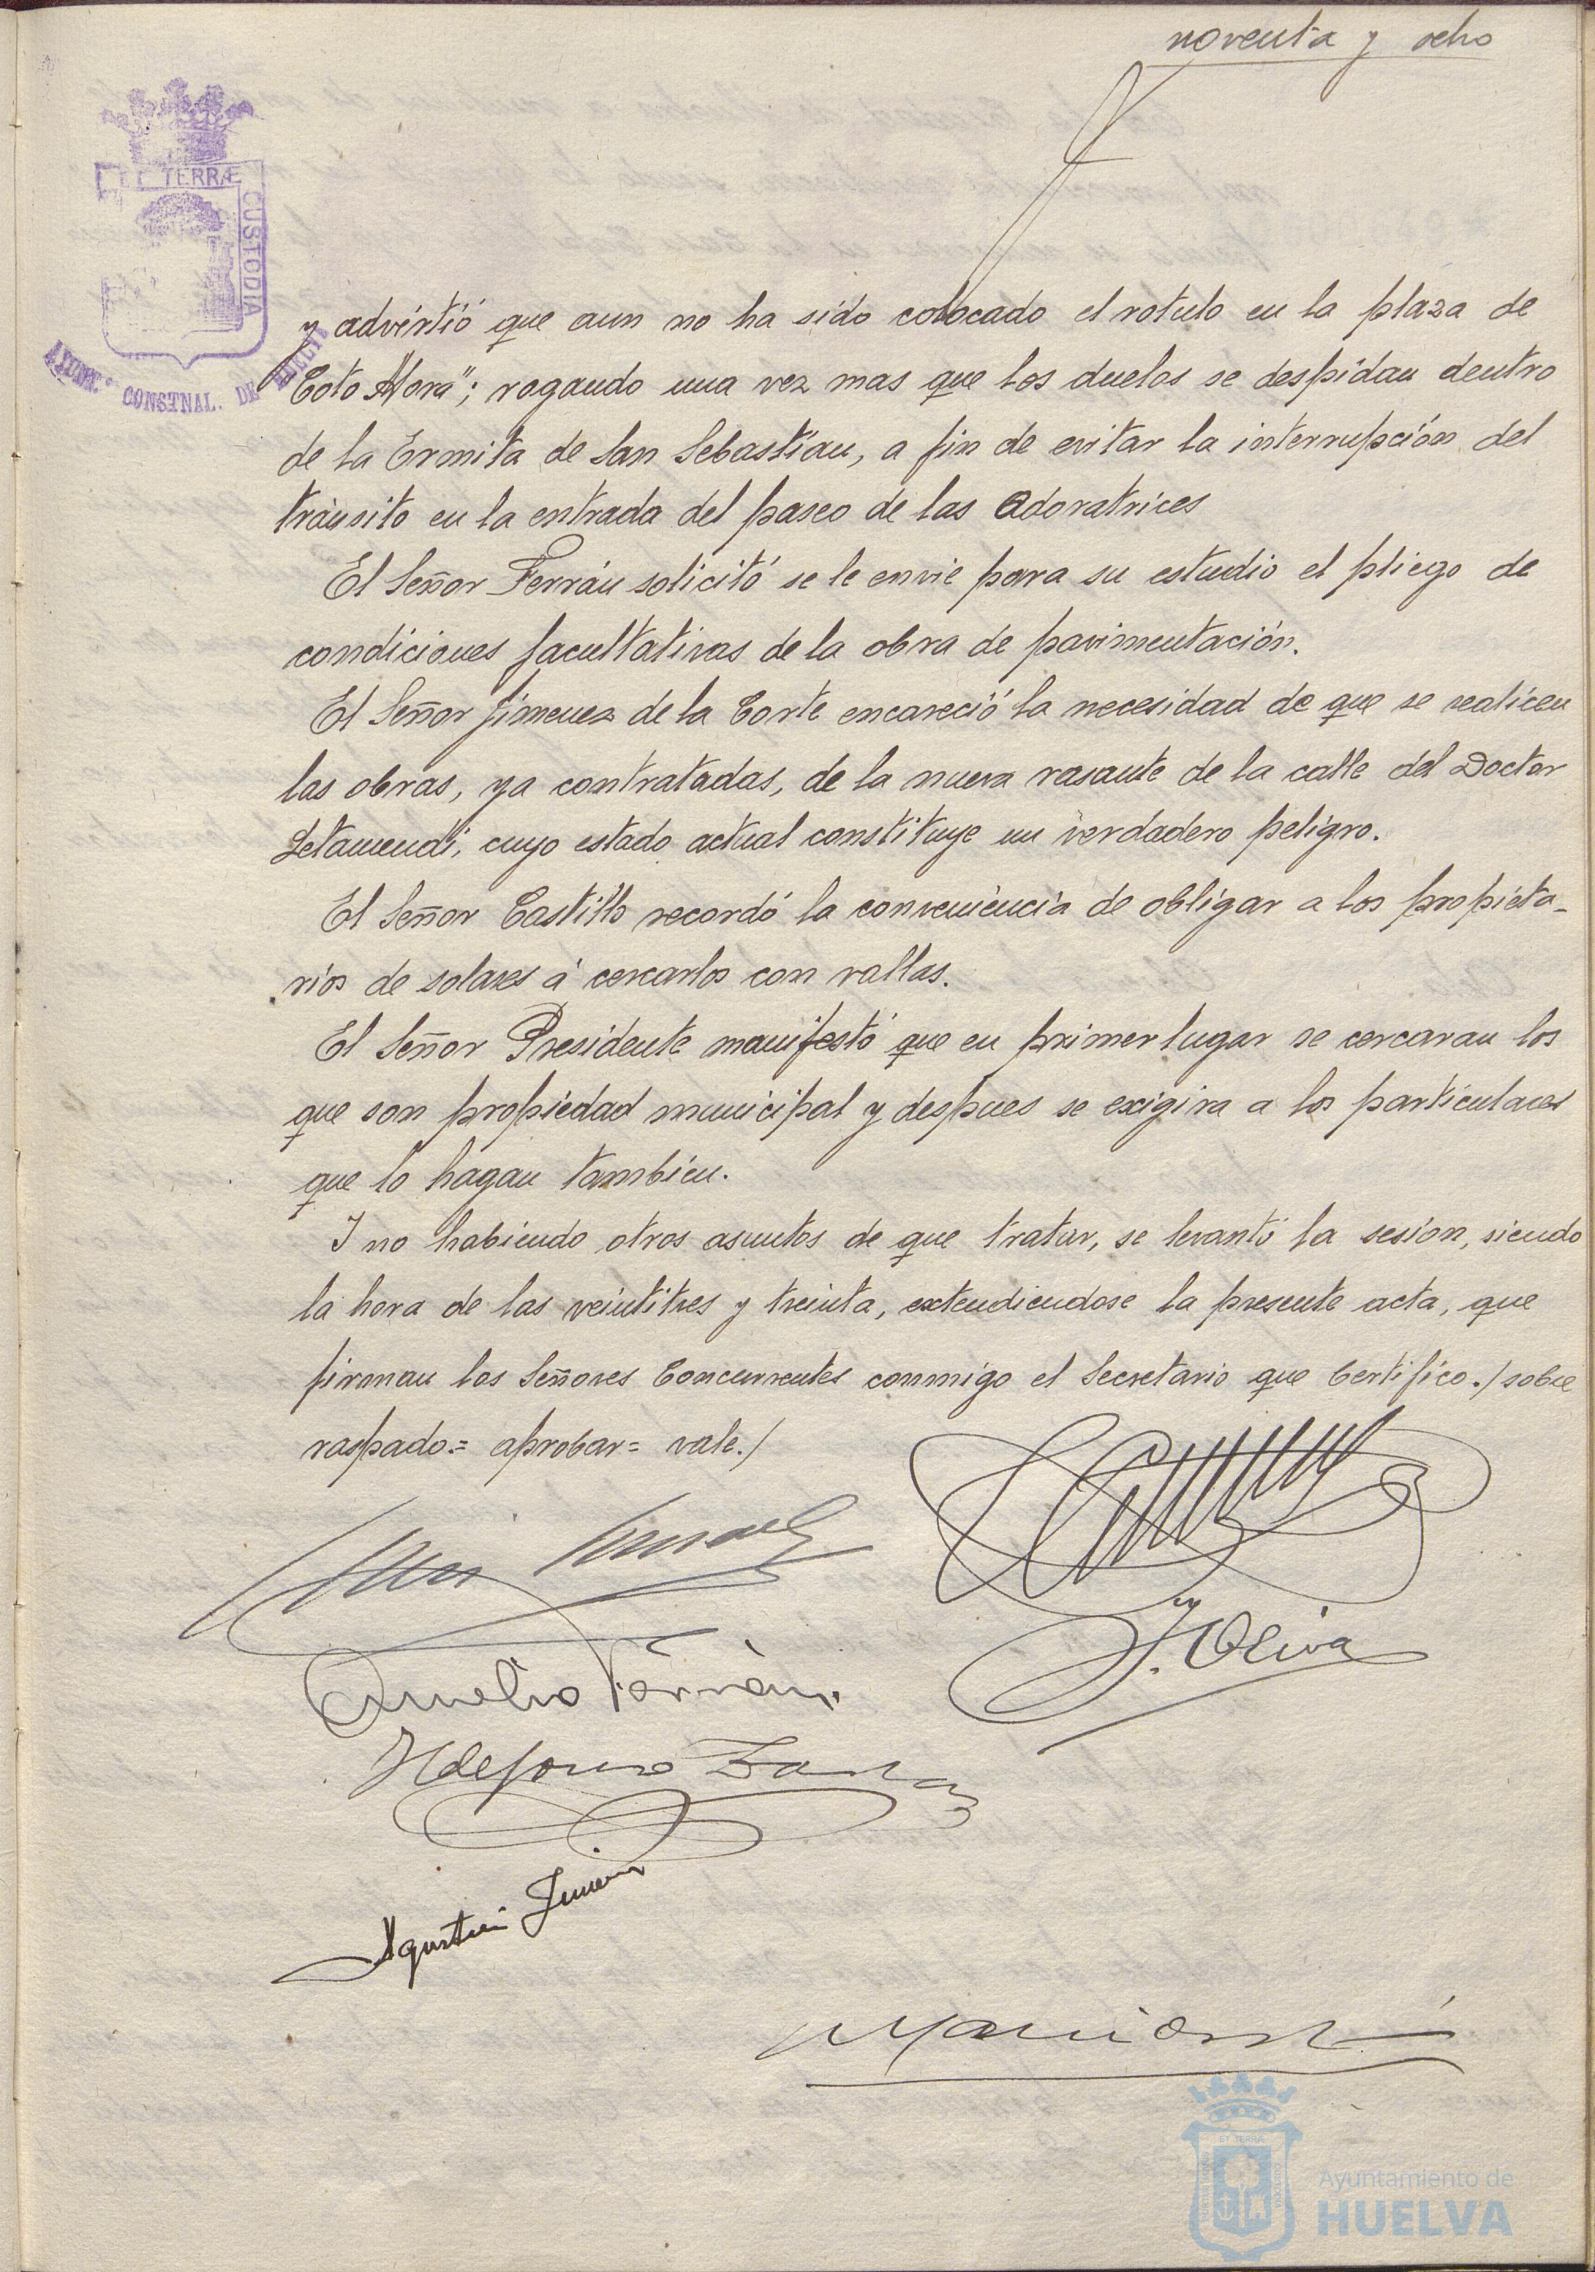 noventa y ocho
ET TERRÆ
CUSTODIA
AYUNT.º CONSTNAL. DE HUELVA
y advirtió que aun no ha sido colocado el rotulo en la plaza de
"Coto Mora"; rogando una vez mas que los duelos se despidan dentro
de la Ermita de San Sebastián, a fin de evitar la interrupción del
tránsito en la entrada del paseo de las Adoratrices
El Señor Ferrán solicitó se le envie para su estudio el pliego de
condiciones facultativas de la obra de pavimentación.
El Señor Jimenez de la Corte encareció la necesidad de que se realicen
las obras, ya contratadas, de la nueva rasante de la calle del Doctor
Letamendi, cuyo estado actual constituye un verdadero peligro.
El Señor Castillo recordó la conveniencia de obligar a los propieta-
rios de solares á cercarlos con vallas.
El Señor Presidente manifestó que en primer lugar se cercaran los
que son propiedad municipal y despues se exigira a los particulares
que lo hagan tambien.
Y no habiendo otros asuntos de que tratar, se levantó la sesion, siendo
la hora de las veintitres y treinta, extendiendose la presente acta, que
firman los Señores Concurrentes conmigo el Secretario que Certifico./sobre
raspado.= aprobar= vale./
J. Oliva
Aurelio Ferrán
Ildefonso
Agustin Jimenez
ET TERRÆ
Ayuntamiento de
HUELVA